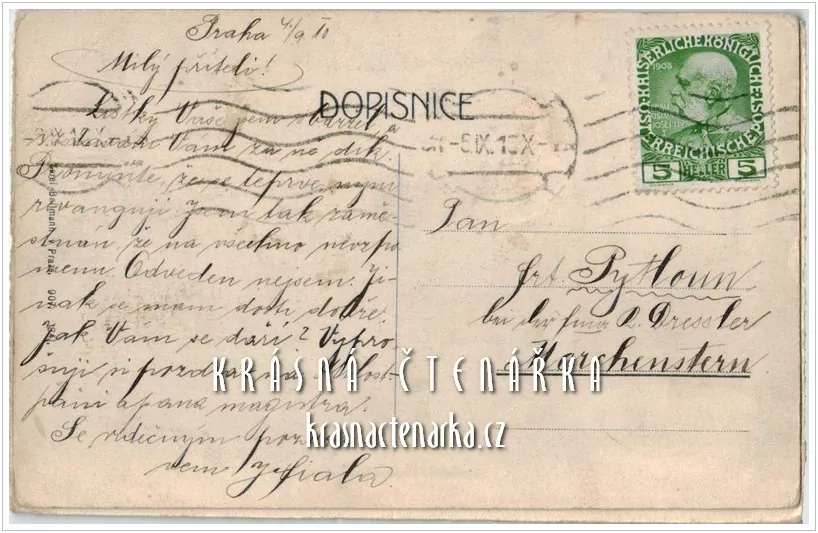 Praha 4/9 10
Milý příteli!
Lístky Vaše jsem obdržel a
Vám za ně dík.
Promiňte, že se teprve nyní
revanguji. Jsem tak zamě-
stnán, že na všechno nevzpo
menu. Odveden nejsem. Ji-
nak se mám dosti dobře.
Jak Vám se daří? Vypro-
šuji si pozdrav na
paní a pana magistra.
Se vděčným pozdra
vem J. Fiala
DOPISNICE
-5.IX.10.X-
KAISERLICHE KÖNIGLICHE
ÖSTERREICHISCHE
1908
5 HELLER 5
Pan
frt. Pytloun
bei der firma L. Dressler
Morchenstern
KRÁSNÁ ČTENÁŘKA
krasnactenarka.cz